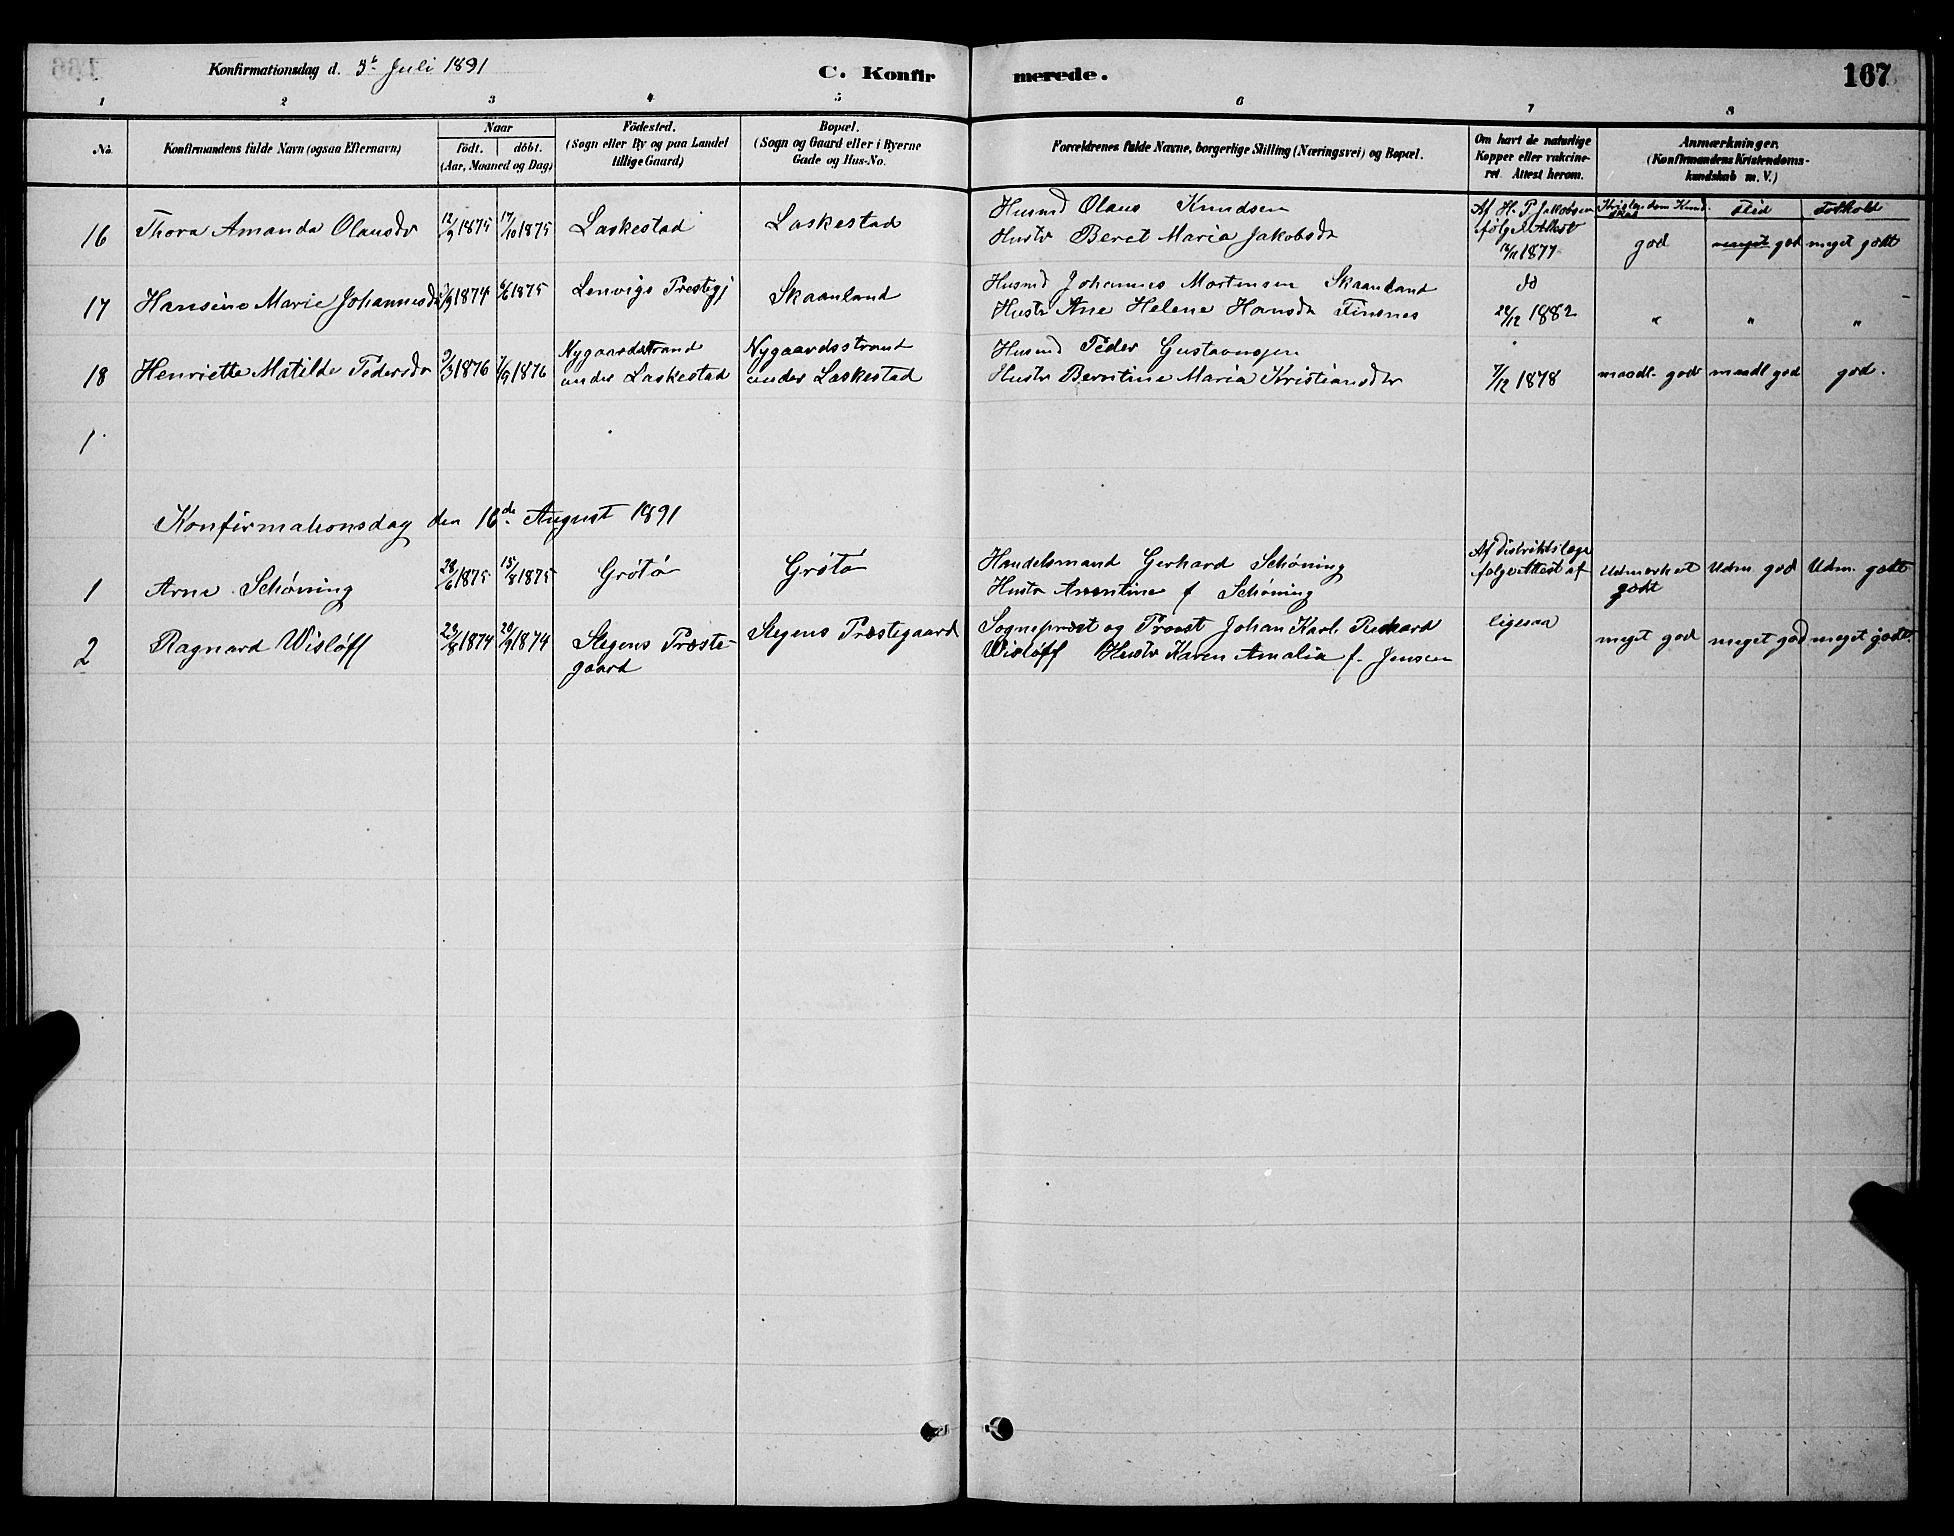 Konfirmationsdag d. 5te Juli 1891
C. Konfirmerede.
167
1 2 3 4 5 6 7 8
No. Konfirmandens fulde Navn (ogsaa Efternavn) Naar födt. döbt. (Aar, Maaned og Dag) Födested. (Sogn eller By og paa Landet tillige Gaard) Bopæl. (Sogn og Gaard eller i Byerne Gade og Hus-No. Forældrenes fulde Navne, borgerlige Stilling (Næringsvei) og Bopæl. Om havt de naturlige Kopper eller vakcineret. Attest herom. Anmærkninger. (Konfirmandens Kristendomskundskab m. V.)
Kristendom Kundskab Flid Forhold
16 Thora Amanda Olausdr 1875 17/10 1875 Laskestad Laskestad Husmd Olaus Knudsen
Hustr Beret Maria Jakobsdr Af H. P. Jakobsen ifølge Attest 1877 god meget god meget godt
17 Hansine Marie Johannesdr 1874 1875 Lenvigs Prestegj Skaanland Husmd Johannes Mortensen Skaanland
Hustr Ane Helene Hansdr Finsnes do 22/12 1882 " " "
18 Henriette Matilde Pedersdr 9/3 1876 7/9 1876 Nygaardstrand under Laskestad Nygaardsstrand under Laskestad Husmd Peder Gustavussen
Hustr Berntine Maria Kristiansdtr 7/12 1878 maadl. god maadl god god.
1
Konfirmationsdag den 16de August 1891
1 Arne Schøning 28/6 1875 15/8 1875 Grøtø Grøtø Handelsmand Gerhard Schøning
Hustr Arentine f Schøning Af Distriktslæge følge Attest af Udmærket godt Udm. god Udm. godt
2 Ragnard Wisløff 29/8 1874 20/9 1874 Stegens Præstegaard Stegens Præstegaard Sognepræst og Provst Johan Karl Rickard
Wisløff Hustr Karen Amalia f. Jensen ligesaa meget god meget god meget godt.